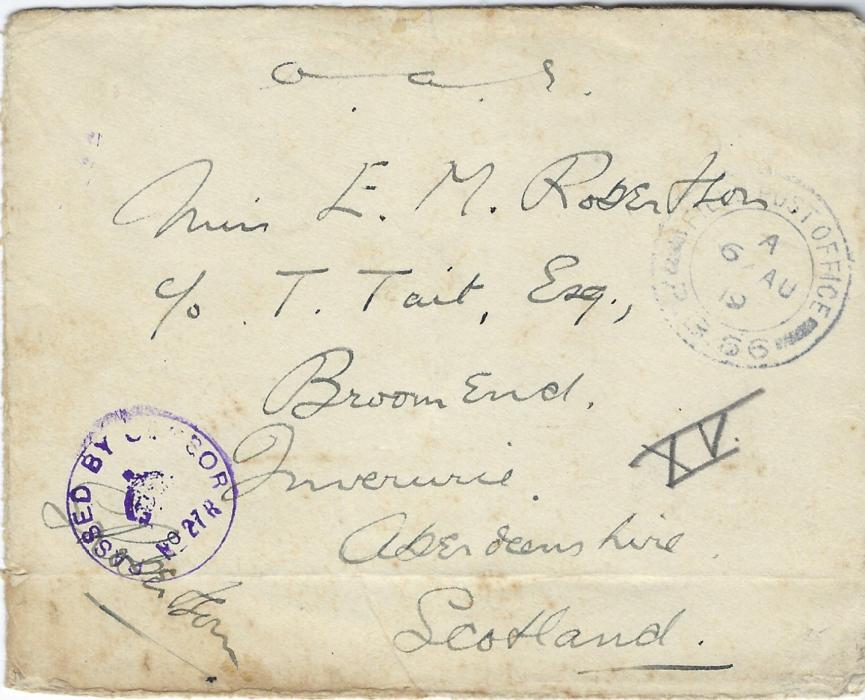 O. A. S.
Miss E. M. Robertson.
c/o T. Tait, Esq.,
Broom End.
Inverurie.
Aberdeenshire.
Scotland.
FIELD POST OFFICE
A
6 AU
19
XV.
PASSED BY CENSOR
No 27R
Robertson